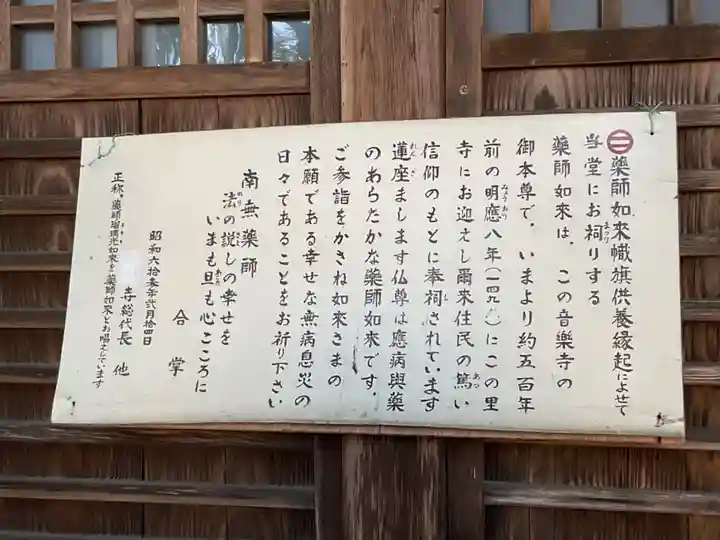 ㊂ 薬師如来幟旗供養縁起によせて
当堂にお祠りする
薬師如来は、この音樂寺の
御本尊で、いまより約五百年
前の明應八年(一四九 )にこの里
寺にお迎えし爾来住民の篤い
信仰のもとに奉祠されています
蓮座まします仏尊は應病與薬
のあらたかな薬師如来です。
ご参詣をかさね如来さまの
本願である幸せな無病息災の
日々であることをお祈り下さい
南無薬師
法の説しの幸せを
いまも旦も心こころに
合掌
昭和六拾参年弐月拾四日
寺総代長 他
正称、薬師瑠璃光如来を薬師如来とお唱えしています